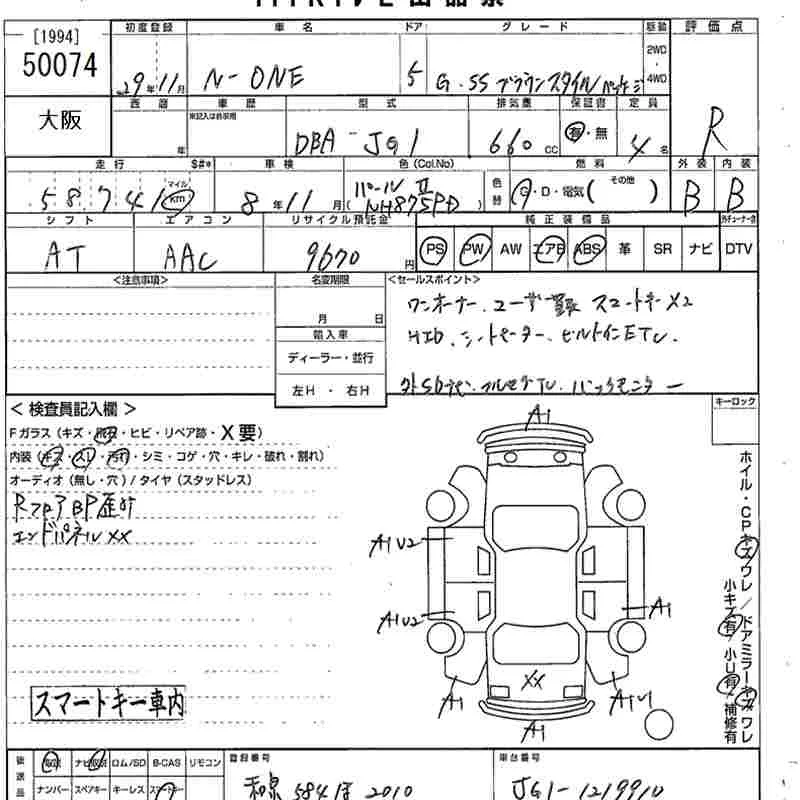 [1994]
50074
大阪
初度登録 車名 ドア グレード 駆動 評価点
29年11月 N-ONE 5 G・SS ブラウンスタイルパッケージ 2WD・4WD R
西暦 車歴 型式 排気量 保証書 定員
※記入は自家用
年 DBA-JG1 660cc 有・無 4名
走行 $#* 車検 色(Col.No) 燃料 外装 内装
58741 マイル km 8年11月 パールII (NH875PD) 色替 G・D・電気( その他 ) B B
シフト エアコン リサイクル預託金 純正装備品
AT AAC 9670円 PS PW AW エアB ABS 革 SR ナビ DTV
<注意事項> 名変期限 <セールスポイント>
月 日
輸入車
ディーラー・並行
左H ・ 右H
ワンオーナー、ユーザー買取 スマートキー×2
HID、シートヒーター、ビルトインETC、
フルセグTV、バックモニター
キーロック
<検査員記入欄>
Fガラス(キズ・飛石・ヒビ・リペア跡・X要)
内装(キズ・スレ・汚れ・シミ・コゲ・穴・キレ・破れ・割れ)
オーディオ(無し・穴)/タイヤ(スタッドレス)
RフロアBP歪み
エンドパネルXX
スマートキー車内
A1
A1U2
A1U2
A1
A1
XX
A1U1
A1
ホイル・CPキズワレ/ドアミラーキズワレ
小キズ有/小U有/補修有
後送品 取説 ナビ取説 ロム/SD B-CAS リモコン
ナンバー スペアキー キーレス スマートキー
登録番号
和泉 584 ほ 2010
車台番号
JG1-1219910